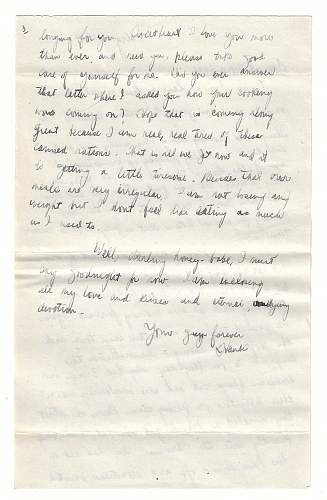 longing for you, sweetheart I love you more
than ever and need you. Please take good
care of yourself for me. Did you ever answer
that letter where I asked you how your cooking
was coming on? Hope that is coming along
great because I am real, real tired of these
canned rations. That is all we get now and it
is getting a little tiresome. Besides that our
meals are very irregular. I am not losing any
weight but I don't feel like eating as much
as I used to.
Well, darling honey-babe, I must
say goodnight for now. I am enclosing
all my love and kisses and eternal, undying
devotion.
Your guy forever
Hank